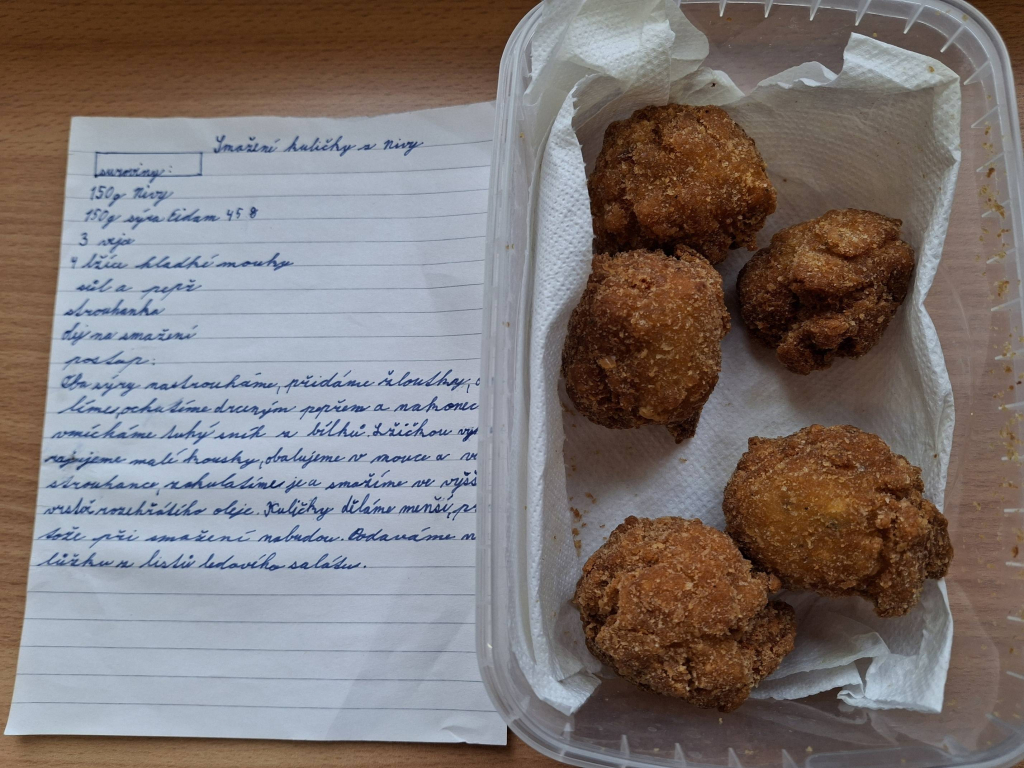 Smažení kuličky z Nivy
suroviny:
150g Nivy
150g sýra Eidam 45%
3 vejce
4 lžíce hladké mouky
sůl a pepř
strouhanka
olej na smažení
postup:
Oba sýry nastrouháme, přidáme žloutky,
líme, ochutíme drceným pepřem a nakonec
vmícháme tuhý sníh z bílků. Lžičkou
malé kousky, obalujeme v mouce a
strouhance, zakulatíme je a smažíme ve
vrstvě rozehřátého oleje. Kuličky děláme menší,
tože při smažení nabudou. Podáváme
lůžku z listů ledového salátu.